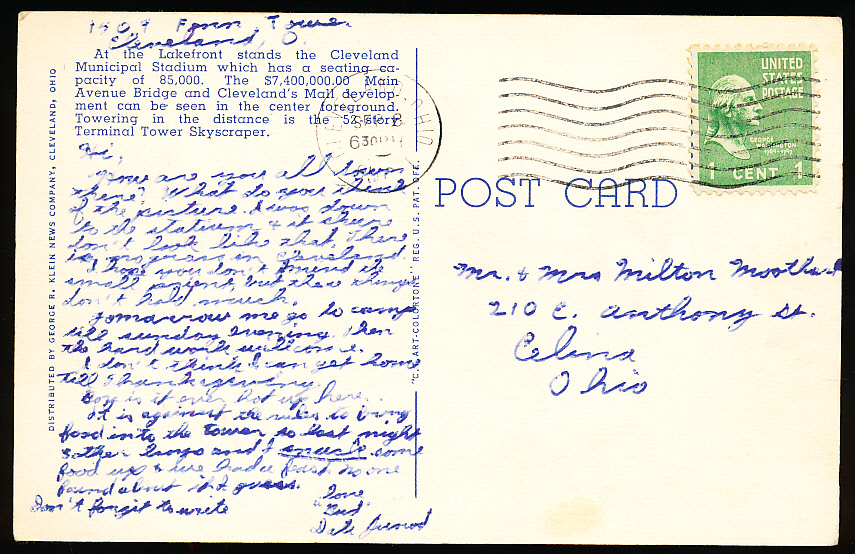 1609 Fenn Tower
Cleveland, O.
At the Lakefront stands the Cleveland
Municipal Stadium which has a seating ca-
pacity of 85,000. The $7,400,000.00 Main
Avenue Bridge and Cleveland's Mall develop-
ment can be seen in the center foreground.
Towering in the distance is the 52-story
Terminal Tower Skyscraper.
Hi,
How are you all down
there? What do you think
of the picture. I was down
to the statium & it shure
don't look like that. There
is no grass in Cleveland.
I hope you don't mind the
small print, but these things
don't hold much.
Tomarrow we go to camp
till sunday evening. Then
the hard work will come.
I don't think I can get home
till Thanksgiving.
Boy is it ever hot up here.
It is against the rules to bring
food into the tower so last night
3 other boys and I snuck some
food up & we had a feast. No one
found about it I guess.
Love
"Bud"
Don't forget to write
DISTRIBUTED BY GEORGE R. KLEIN NEWS COMPANY, CLEVELAND, OHIO
"C.T. ART-COLORTONE" REG. U.S. PAT. OFF.
OHIO
SEP
630PM
UNITED
STATES
POSTAGE
GEORGE
WASHINGTON
1789-1797
1 CENT 1
POST CARD
Mr. & Mrs Milton
210 E. Anthony St.
Celina
Ohio